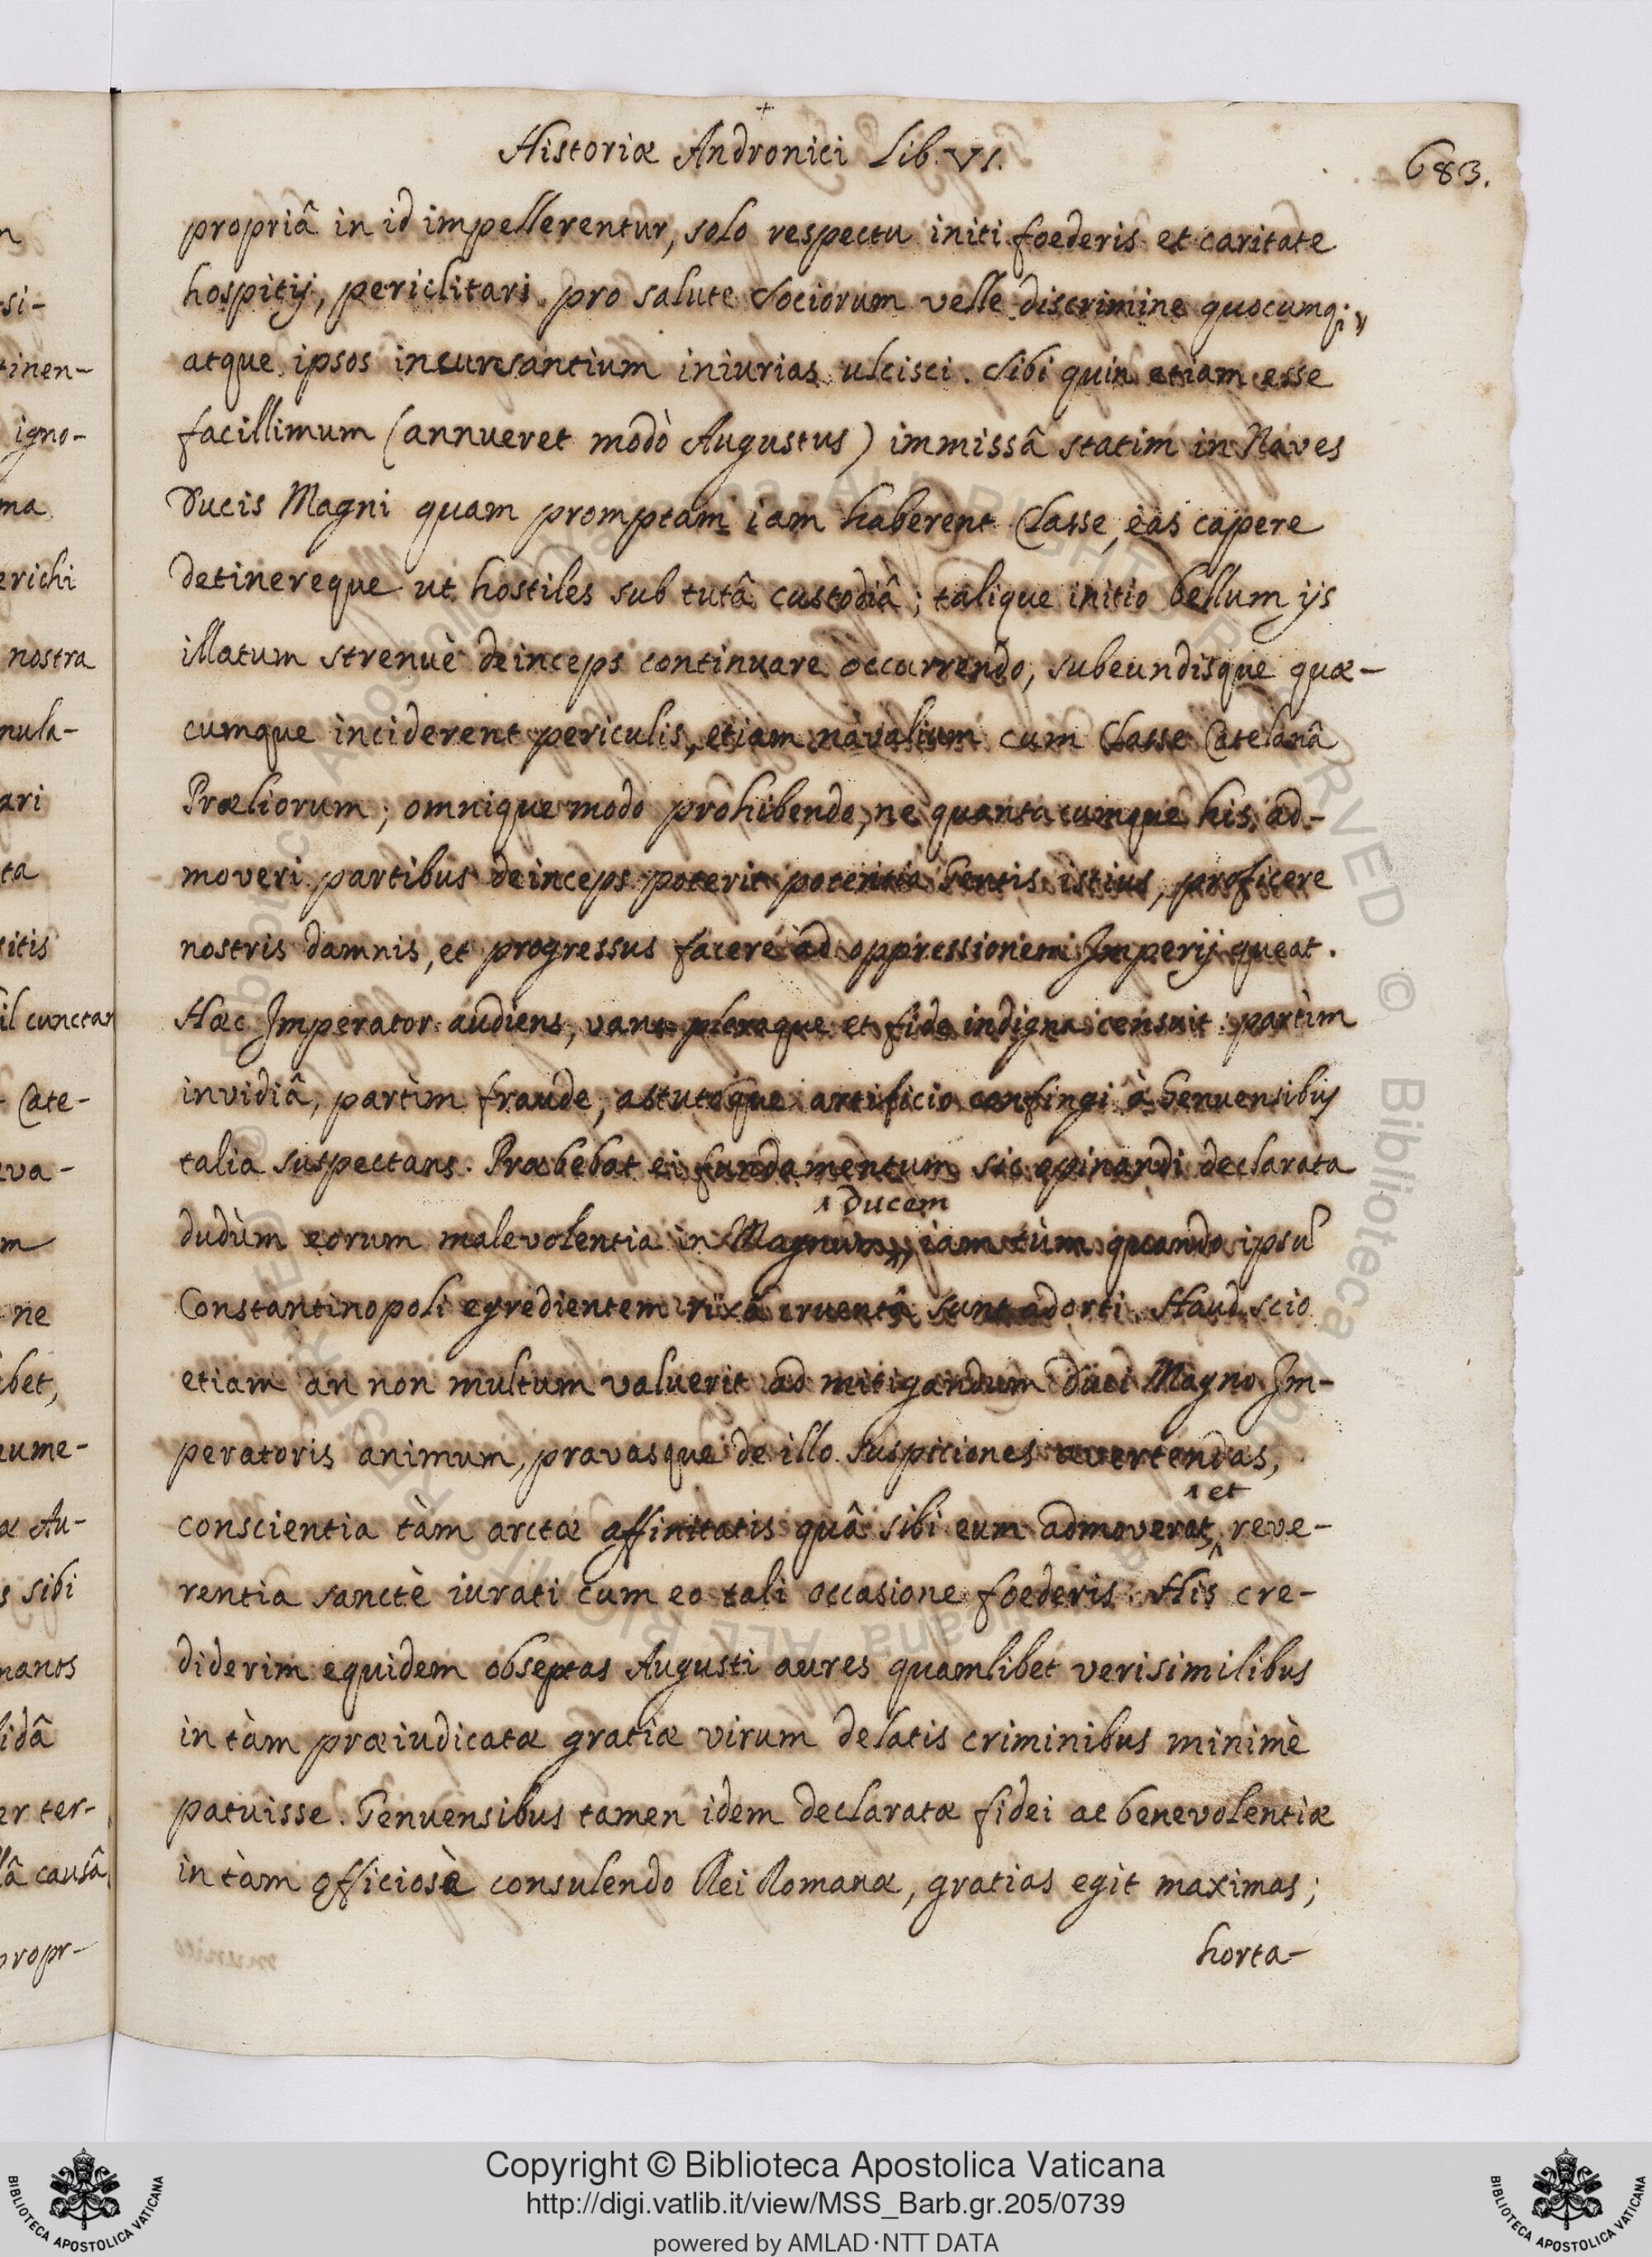 Historiæ Andronici Lib. VI.
683.
propriâ in id impellerentur, solo respectu initi foederis et caritate
hospitij, periclitari pro salute Sociorum velle discrimine quocumq;
atque ipsos incursantium iniurias ulcisci. Sibi quin etiam esse
facillimum (annueret modò Augustus) immissâ statim in Naves
Ducis Magni quam promptam iam haberent Classe, eas capere
detinereque ut hostiles sub tutâ custodiâ; talique initio bellum ijs
illatum strenuè deinceps continuare occurrendo, subeundisque quæ-
cumque inciderent periculis, etiam navalium cum Classe Catelanâ
Præliorum; omnique modo prohibendo, ne quantacumque his ad-
moveri partibus deinceps poterit potentia Gentis istius, proficere
nostris damnis, et progressus facere ad oppressionem Imperij queat.
Hæc Imperator audiens, vana pleraque et fide indigna censuit: partìm
invidiâ, partìm fraude, astutoque artificio confingi à Genuensibus
talia suspectans. Præbebat ei fundamentum sic opinandi declarata
Ducem
dudùm eorum malevolentia in Magnum, iam tùm quando ipsũ
Constantinopoli egredientem rixâ cruentâ sunt adorti. Haud scio
etiam an non multum valuerit ad mitigandum Duci Magno Im-
peratoris animum, pravasque de illo suspiciones avertendas,
et
conscientia tàm arctæ affinitatis quâ sibi eum admoverat, reve-
rentia sanctè iurati cum eo tali occasione foederis. His cre-
diderim equidem obseptas Augusti aures quamlibet verisimilibus
in tàm præiudicatæ gratiæ virum delatis criminibus minimè
patuisse. Genuensibus tamen idem declaratæ fidei ac benevolentiæ
in tàm officiosè consulendo Rei Romanæ, gratias egit maximas;
horta-
si-
tinen-
igno-
ma
erichi
nostra
nula-
ari
ta
sitis
il cunctar
Cate-
va-
m
ne
bet,
ume-
æ Au-
s sibi
manos
lidâ
er ter-
lâ causâ
propr-
Copyright © Biblioteca Apostolica Vaticana
http://digi.vatlib.it/view/MSS_Barb.gr.205/0739
powered by AMLAD·NTT DATA
BIBLIOTECA APOSTOLICA VATICANA
BIBLIOTECA APOSTOLICA VATICANA